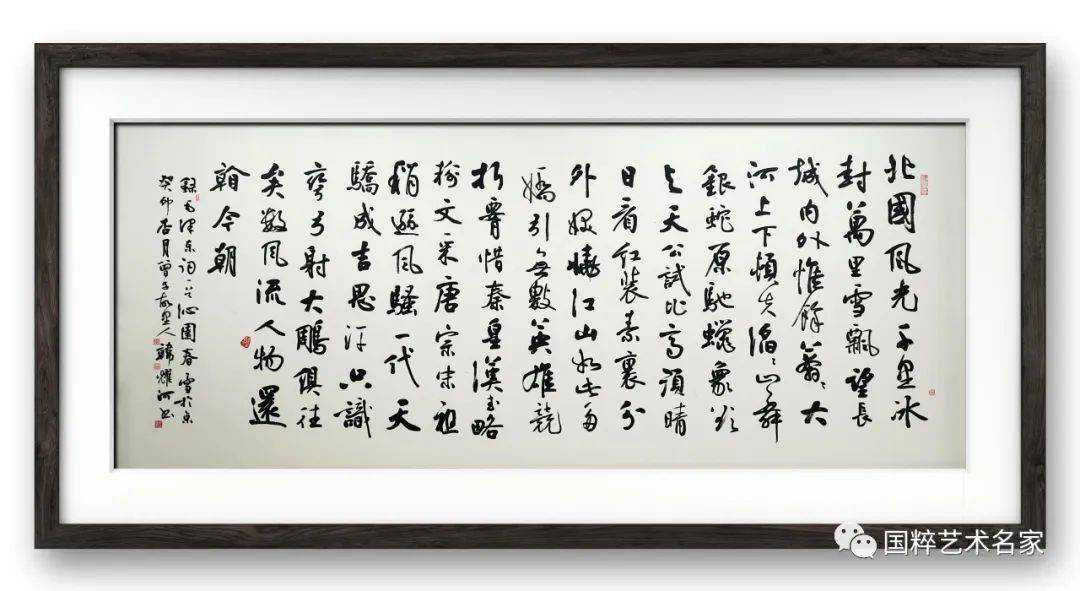 北國風光千里冰
封萬里雪飄望長
城内外惟餘莽〻大
河上下頓失滔〻山舞
銀蛇原馳蠟象欲
与天公試比高須晴
日看紅裝素裹分
外妖嬈江山如此多
嬌引無數英雄競
折腰惜秦皇漢武略
輸文采唐宗宋祖
稍遜風騷一代天
驕成吉思汗只識
彎弓射大鵰俱往
矣數風流人物還
看今朝
錄毛澤東詞一首沁園春雪於京
癸卯杏月曾子故里人韓耀河書
国粹艺术名家